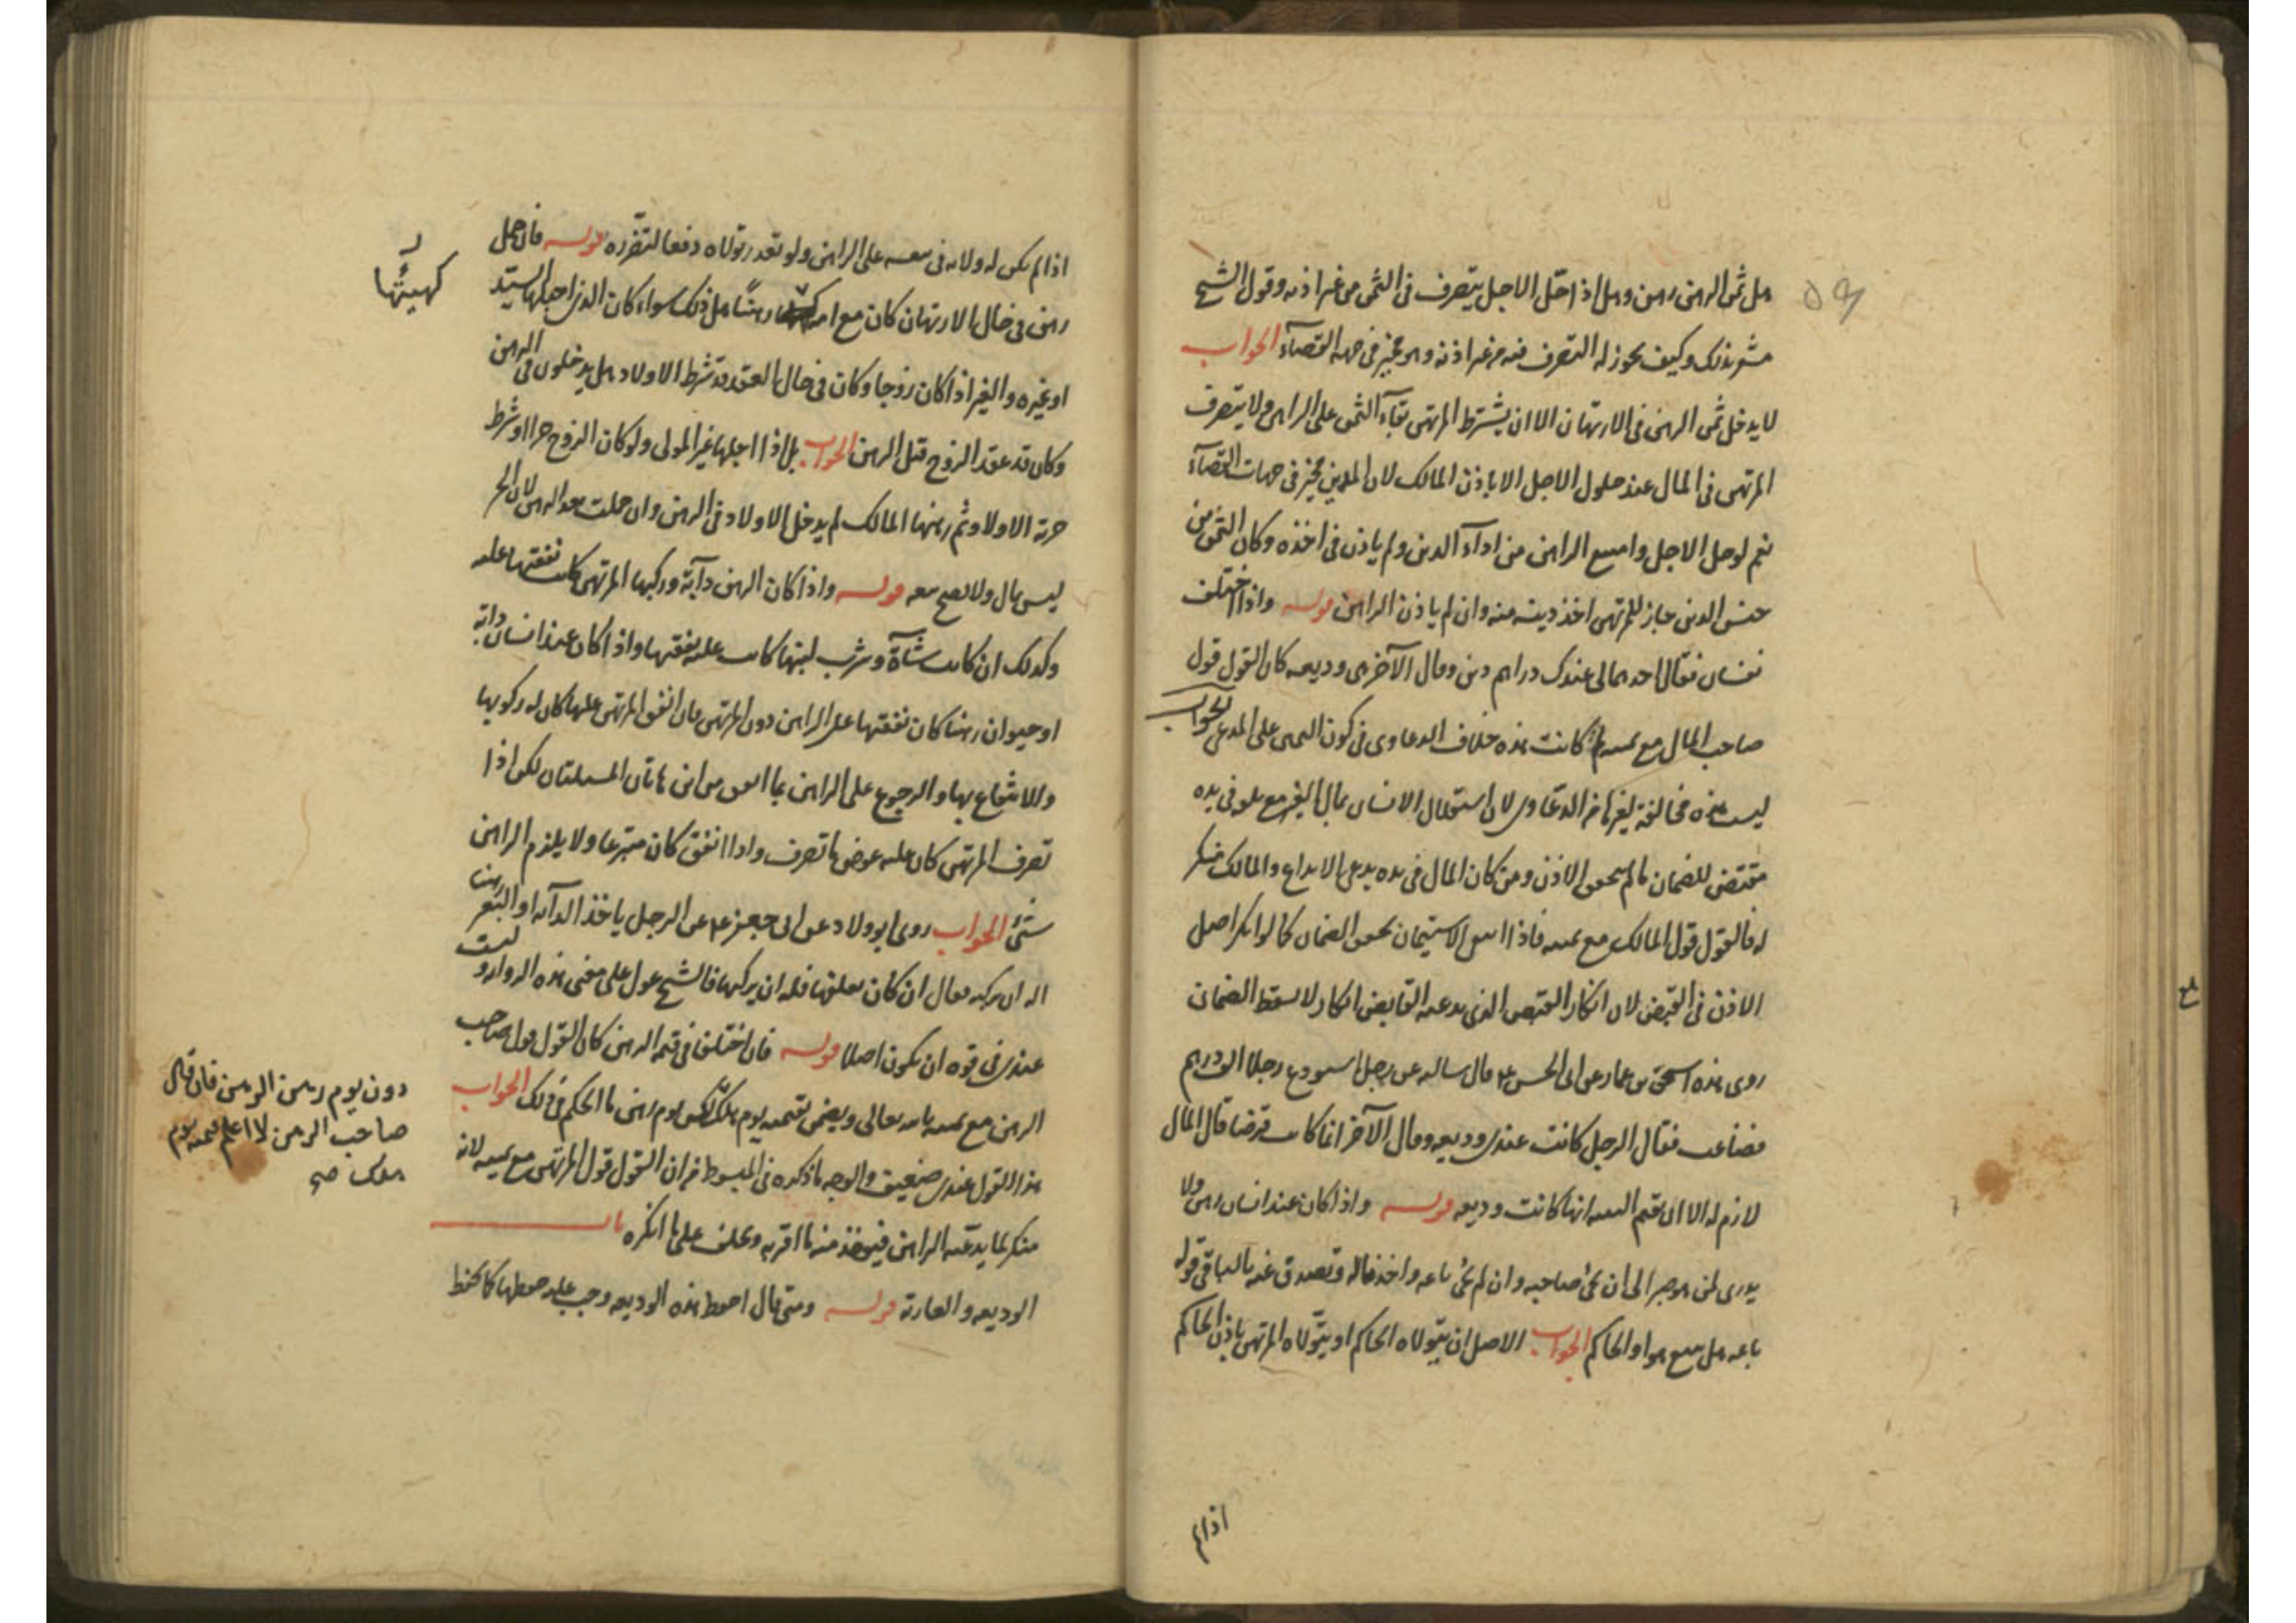 هل ثمن الرهن رهن وهل اذا حل الاجل يتصرف في الثمن من غير اذنه وقول الشيخ
مشعر بذلك وكيف يجوز له التصرف فيه من غير اذنه وهو مخير في جهة القضآء الجواب
لا يدخل ثمن الرهن في الارتهان الا ان يشترط المرتهن بقآء الثمن على الراهن ولا يتصرف
المرتهن في المال عند حلول الاجل الا باذن المالك لان المدين مخير في جهات القضآء
نعم لو حل الاجل وامتنع الراهن من ادآء الدين ولم ياذن في اخذه وكان الثمن من
جنس الدين جاز للمرتهن اخذ دينه منه وان لم ياذن الراهن قوله واذا اختلف
نفسان فقال احدهما لي عندك دراهم دين وقال الآخر هي وديعه كان القول قول
صاحب المال مع يمينه لم كانت هذه خلاف الدعاوى في كون اليمين على المدعي الجواب
ليست هذه مخالفة لغيرها من الدعاوى لان استقلال الانسان بمال الغير مع تلفه في يده
مقتضي للضمان ما لم يتحقق الاذن ومن كان المال في يده يدعي الايداع والمالك منكر
له فالقول قول المالك مع يمينه فاذا انتفى الاستيمان تحقق الضمان كما لو انكر اصل
الاذن في القبض لان انكار القبض الذي يدعيه القابض انكار لا يسقط الضمان
روى هذه اسحق بن عمار عن ابي الحسن ع قال سالته عن رجل استودع رجلا الف درهم
فضاعت فقال الرجل كانت عندي وديعه وقال الآخر انما كانت قرضا قال المال
لازم له الا ان يقيم البينه انها كانت وديعه قوله واذا كان عند انسان رهن ولا
يدري لمن هو صبر الى ان يجئ صاحبه وان لم يجئ باعه واخذ ماله وتصدق عنه بالباقي قوله
باعه هل يبيع هو او الحاكم الجواب الاصل ان يتولاه الحاكم او يتولاه المرتهن باذن الحاكم
اذا لم
اذا لم يكن له ولايه في بيعه على الراهن ولو تعذر تولاه دفعا لتضرره قوله فان حمل
رهن في حال الارتهان كان مع امه رهنًا هل ذلك سواء كان الذي احبلها السيد
كهيئتها
او غيره والغير اذا كان زوجا وكان في حال العقد قد شرط الاولاد هل يدخلون في الرهن
وكان قد عقد الزوج قبل الرهن الجواب بل اذا احبلها غير المولى ولو كان الزوج حرا او شرط
حرية الاولاد ثم رهنها المالك لم يدخل الاولاد في الرهن وان حملت بعد الرهن لان الحر
ليس بمال ولا يصح بيعه قوله واذا كان الرهن دآبة وركبها المرتهن كانت نفقتها عليه
وكذلك ان كانت شآة وشرب لبنها كانت عليه نفقتها واذا كان عند انسان دابة
او حيوان رهنا كان نفقتها على الراهن دون المرتهن فان انفق المرتهن عليها كان له ركوبها
والانتفاع بها والرجوع على الراهن بما انفق من اين هاتان المسلتان لكن اذا
تصرف المرتهن كان عليه عوض ما تصرف واذا انفق كان متبرعا ولا يلزم الراهن
شئ الجواب روى ابو ولاد عن ابي جعفر ع عن الرجل ياخذ الدآبه او البعير رهنا
اله ان يركبه فقال ان كان يعلفها فله ان يركبها فالشيخ عول على مغنى هذه الروايه وليست
عندي في قوة ان يكون اصلا قوله فان اختلف في قيمة الرهن كان القول قول صاحب
الرهن مع يمينه بالله تعالى ويضمن بقيمته يوم هلك ليس يوم رهنه ما الحكم في ذلك الجواب
دون يوم رهن الرهن فان قال
صاحب الرهن لا اعلم قيمته يوم
هلك صح
هذا القول عندي ضعيف والوجه ما ذكره في المبسوط من ان القول قول المرتهن مع يمينه لانه
منكر لما يدعيه الراهن فيوخذ منه ما اقر به ويحلف على ما انكره باب
الوديعه والعارية قوله ومتى قال احفظ هذه الوديعه وجب عليه حفظها كما يحفظ